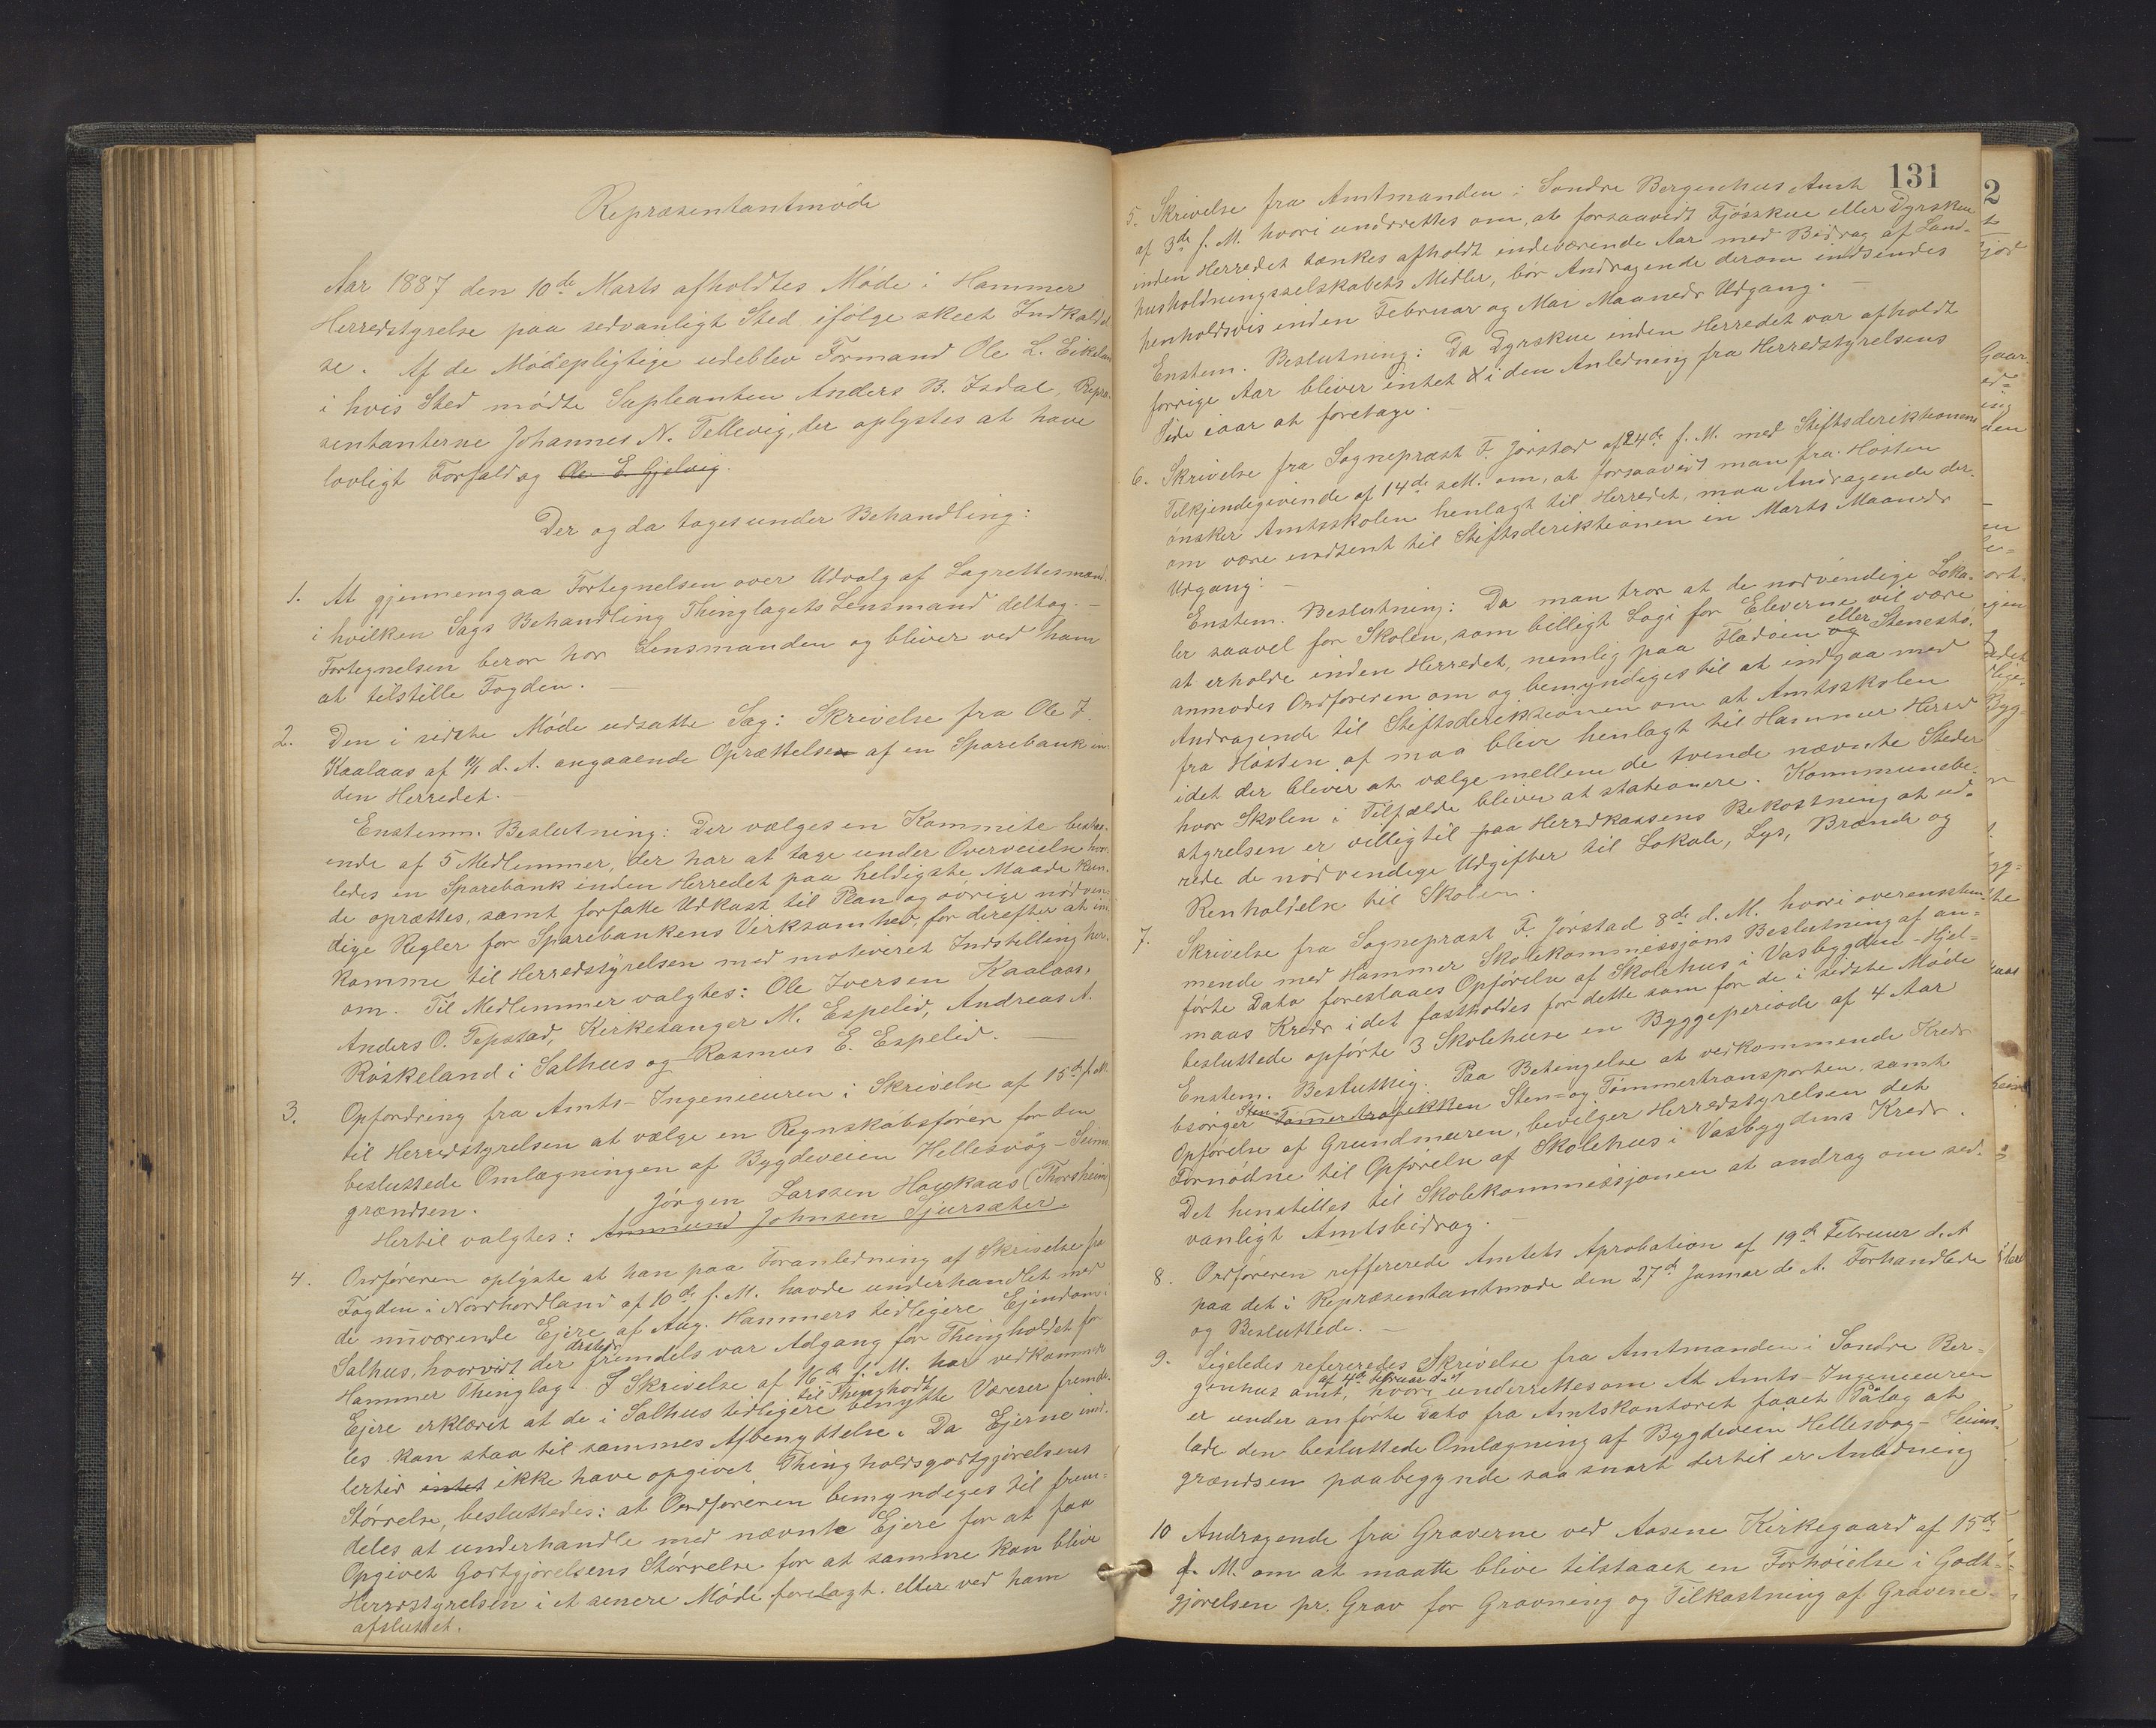 Repræsentantmøde
Aar 1887 den 10de Marts afholdtes Møde i Hammer
Herredstyrelse paa sedvanligt Sted ifølge skeet Indkaldel
se. Af de Mødepligtige udeblev Formand Ole L. Eikeland
i hvis Sted mødte Supleanten Anders B. Isdal, Repræ-
sentanterne Johannes N. Tellevig, der oplystes at have
lovligt Forfald og Ole E. Gjelvig.
Der og da toges under Behandling:
1. At gjennemgaa Fortegnelsen over Udvalg af Lagrettesmænd.
i hvilken Sags Behandling Thinglagets Lensmand deltog. –
Fortegnelsen beror hos Lensmanden og bliver ved ham
at tilstille Fogden. –
2. Den i sidste Møde udsatte Sag: Skrivelse fra Ole I.
Kaalaas af 11/1 d. A. angaaende Oprættelsen af en Sparebank in
den Herredet. –
Enstemm. Beslutning: Der vælges en Kommite bestaa-
ende af 5 Medlemmer, der har at tage under Overveielse hvor
ledes en Sparebank inden Herredet paa heldigste Maade kun
de oprættes, samt forfatte Udkast til Plan og øvrige nødven
dige Regler for Sparebankens Virksomhed, for derefter at ind
komme til Herredstyrelsen med motiveret Indstilling her-
om. Til Medlemmer valgtes: Ole Iversen Kaalaas,
Anders O. Tepstad, Kirkesanger M. Espelid, Andreas A.
Røskeland i Salhus og Rasmus E. Espelid. –
3. Opfordring fra Amts-Ingeniøuren i Skrivelse af 15de f. M.
til Herredstyrelsen at vælge en Regnskabsfører for den
besluttede Omlægningen af Bygdeveien Hellesvøg – Seims
grændsen. Jørgen Larssen Haukaas (Thorsheim)
Hertil valgtes: Ammund Johnsen Tjursæter.
4. Ordføreren oplyste at han paa Foranledning af Skrivelse fra
Fogden i Nordhordland af 10de f. M. havde underhandlet med
de nuværende Ejere af Aug. Hammers tidligere Ejendom i
Salhus, hvorvidt der fremdels var Adgang for Thingholdet for
Hammer Thinglag. I Skrivelse af 16de f. M. har vedkommende
Ejere erklæret at de i Salhus tidligere til Thinghold benyttte Værelser fremde-
les kan staa til sammes Afbenyttelse. Da Ejerne imid-
lertid intet ikke have opgivet Thingholdsgodtgjørelsens
Størrelse, besluttedes: at Ordføreren bemyndiges til frem-
deles at underhandle med nævnte Ejere for at faa
Opgivet Godtgjørelsens Størrelse for at samme kan blive
Herredstyrelsen i et senere Møde forelagt. eller ved ham
afsluttet.
131
5. Skrivelse fra Amtmanden i Søndre Bergenhus Amt
af 3de f. M. hvori underrettes om, at forsaavidt Fjøsskue eller Dyrskue
inden Herredet tænkes afholdt indeværende Aar med Bidrag af Land-
husholdningsselskabets Midler, bør Andragende derom indsendes
henholdsvis inden Februar og Mai Maaneds Udgang. –
Enstem. Beslutning: Da Dyrskue inden Herredet var afholdt
forrige Aar bliver intet i den Anledning fra Herredstyrelsens
Side iaar at foretage. –
6. Skrivelse fra Sognepræst F. Jørstad af 24de f. M. med Stiftsdirektionens
Tilkjendegivende af 14de s. M. om, at forsaavidt man fra Høsten
ønsker Amtsskolen henlagt til Herredet, maa Andragende der-
om være indsent til Stiftsderiktionen in Marts Maaneds
Udgang. –
Enstem. Beslutning: Da man tror at de nødvendige Loka-
ler saavel for Skolen, som billigt Logi for Eleverne vil være
at erholde inden Herredet, nemlig paa Fladøien og eller Stenestø,
anmodes Ordføreren om og bemyndiges til at indgaa med
Andragende til Stiftsderiktionen om at Amtsskolen
fra Høsten af maa blive henlagt til Hammer Herred
idet der bliver at vælge mellem de tvende nævnte Steder
hvor Skolen i Tilfælde bliver at stationere. Kommunebe-
styrelsen er villig til paa Herredkassens Bekostning at ud-
rede de nødvendige Udgifter til Lokale, Lys, Brænde og
Renholdelse til Skolen.
7. Skrivelse fra Sognepræst F. Jørstad 8de d. M. hvori overenstem-
mende med Hammer Skolekommissjons Beslutning af an-
førte Dato foreslaaes Opførelse af Skolehus i Vasbygden – Hjel-
maas Kreds idet fastholdes for dette som for de i sidste Møde
besluttede opførte 3 Skolehuse en Byggeperiode af 4 Aar
Enstem. Beslutnig. Paa Betingelse at vedkommende Kreds
besørger Sten- Tømmertrafikken Sten- og Tømmertransporten, samt
Opførelse af Grundmuren, bevilger Herredstyrelsen det
Fornødne til Opførelse af Skolehus i Vasbygdens Kreds.
Det henstilles til Skolekommissjonen at andrag om sed-
vanligt Amtsbidrag. –
8. Ordføreren reffererede Amtets Aprobation af 19de Februar d. A.
paa det i Repræsentantmøde den 27de Januar d. A. Forhandlede
og Besluttede. –
9. Ligeledes refereredes Skrivelse fra Amtmanden i Søndre Ber-
genhus amt, af 4de Februar d. A. hvori underrettes om At Amts-Ingeniøuren
er under anførte Dato fra Amtskontoret faaet Pålæg at
lade den besluttede Omlægning af Bygdeveien Hellesvøg – Seims-
grændsen paabegynde saa snart dertil er Anledning
10 Andragende fra Graverne ved Aasene Kirkegaard af 15de
f. M. om at maatte blive tilstaaet en Forhøielse i Godt-
gjørelsen pr. Grav for Gravning og Tilkastning af Gravene.
2